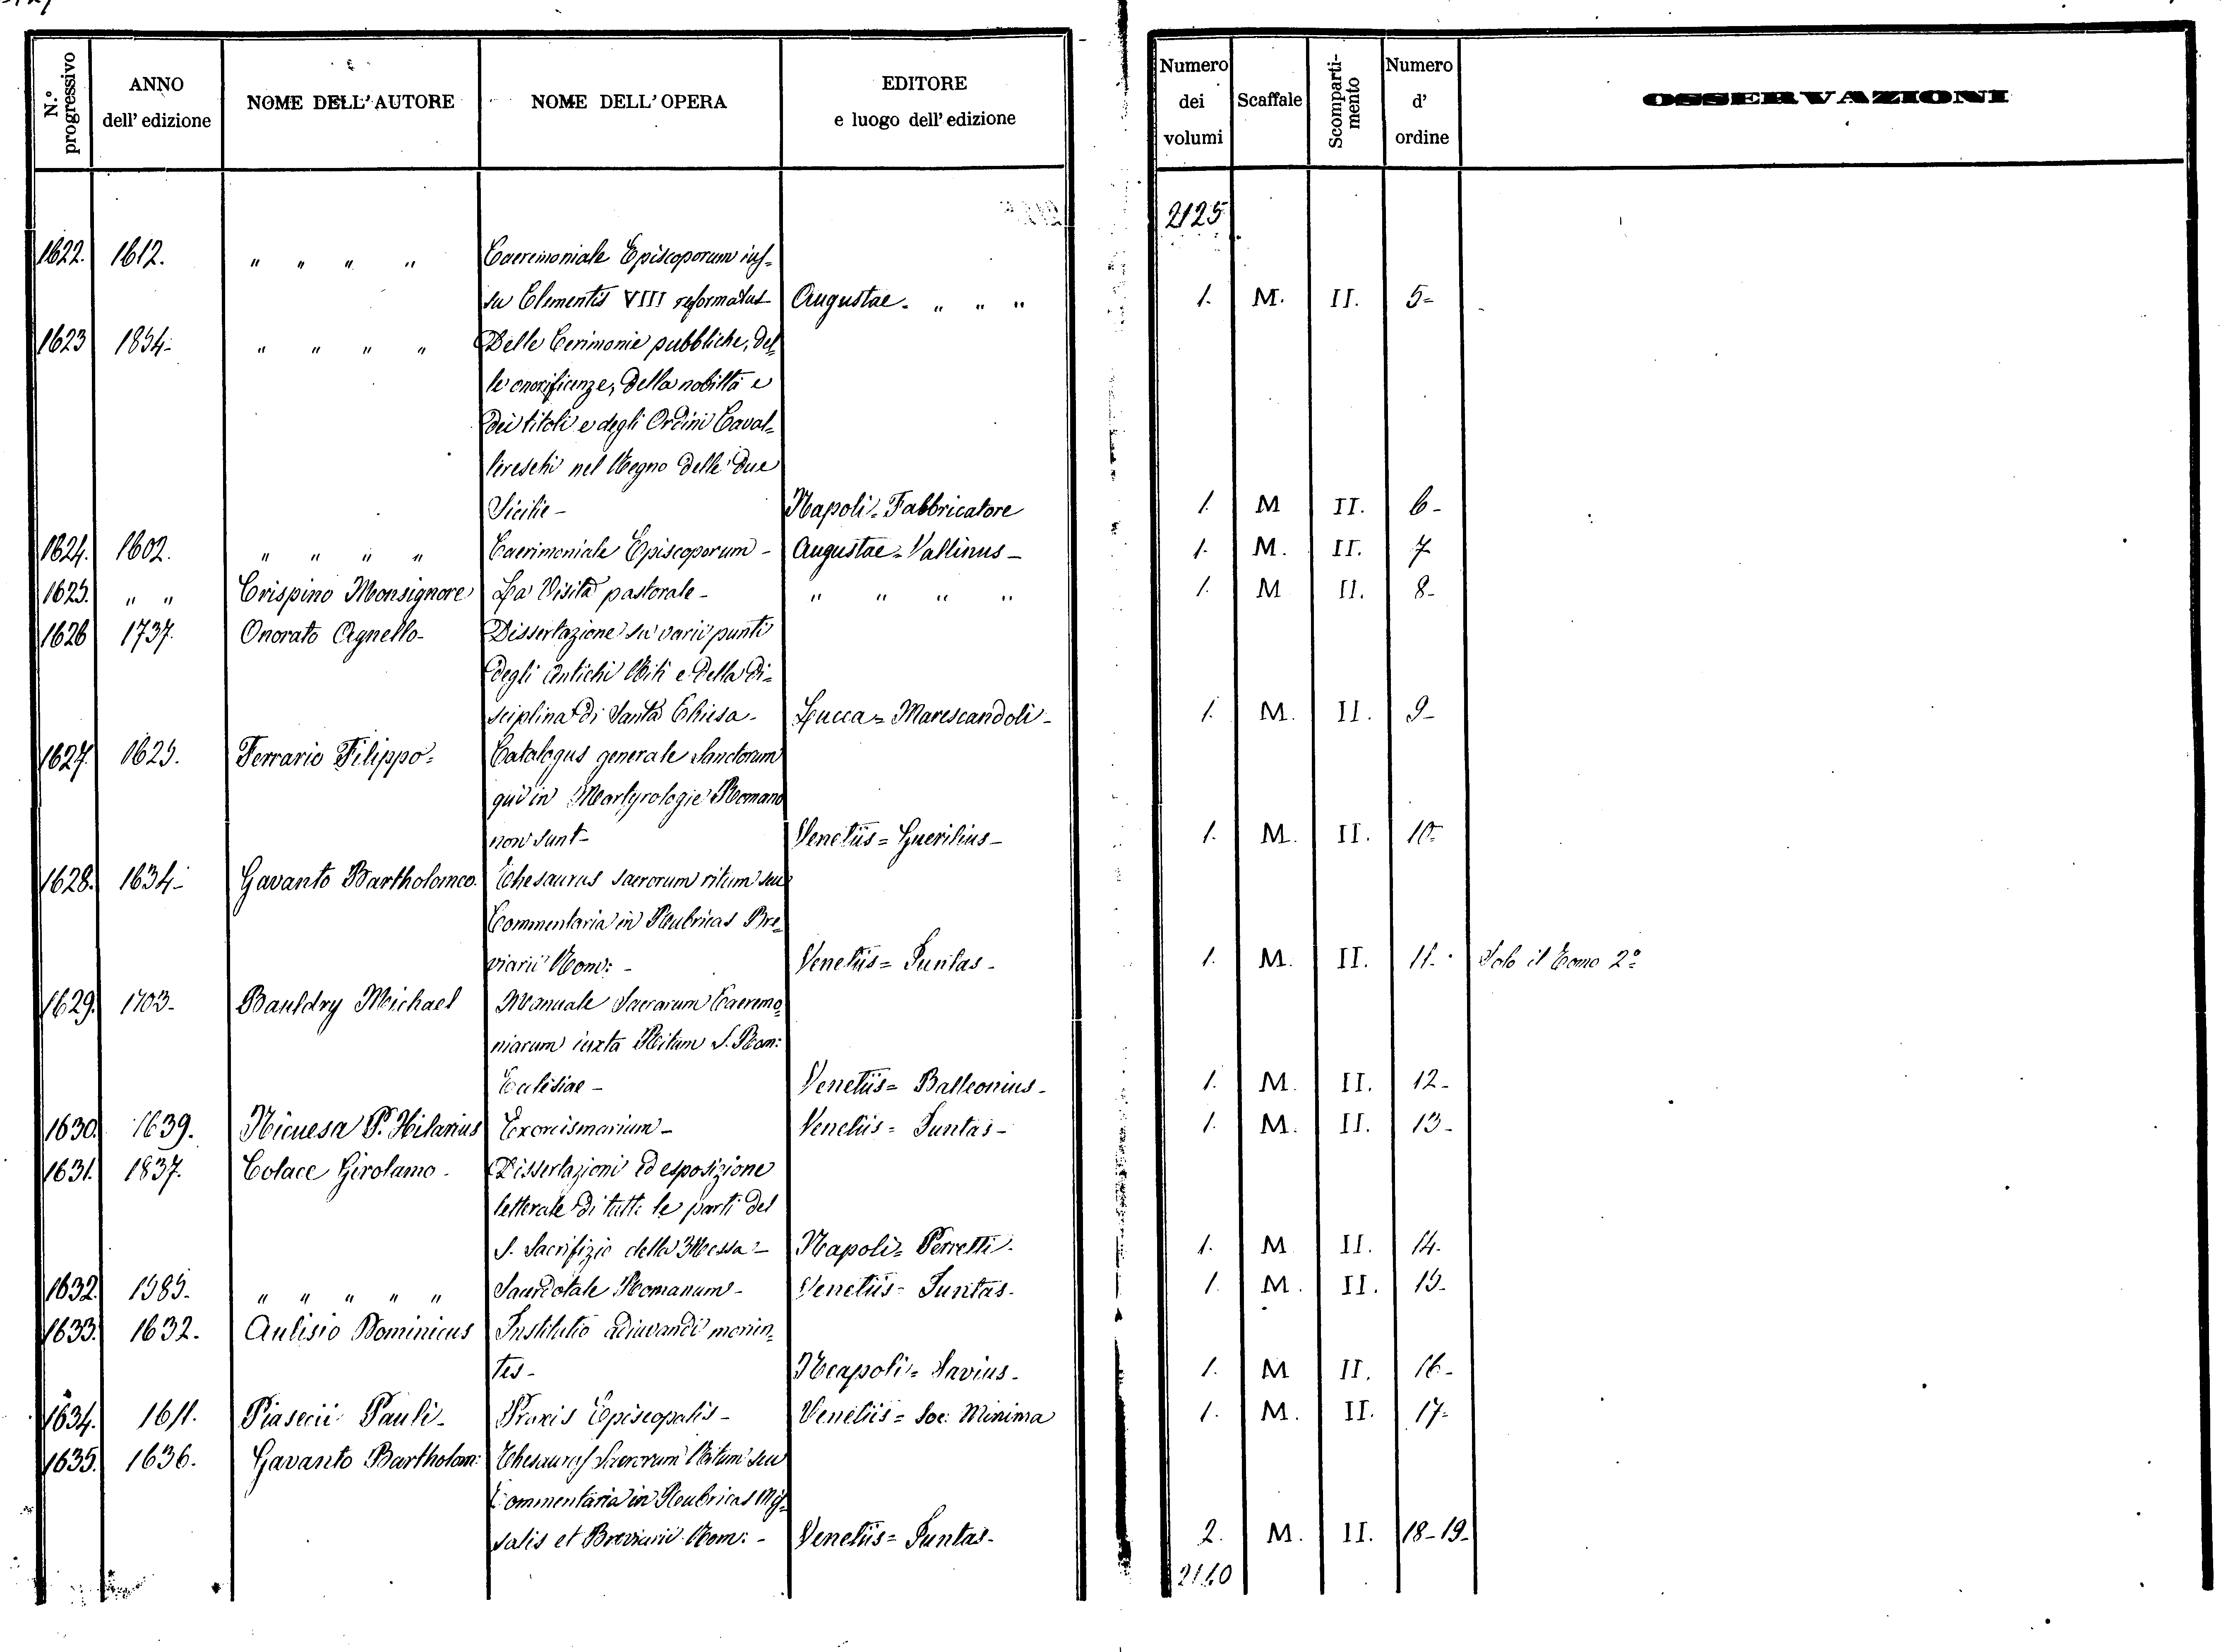 N.° progressivo ANNO dell' edizione NOME DELL' AUTORE NOME DELL' OPERA EDITORE e luogo dell' edizione Numero dei volumi Scaffale Scomparti-mento Numero d' ordine OSSERVAZIONI
2125
1622. 1612. " " " " Caeremoniale Episcoporum ius=
su Clementis VIII reformatus Augustae. " " " 1. M. II. 5-
1623 1854- " " " " Delle Cerimonie pubbliche, del=
le onorificenze, della nobiltà e
dei titoli e degli Ordini Caval=
lereschi nel Regno delle due
Sicilie- Napoli= Fabbricatore 1. M II. 6-
1624. 1602. " " " " Caerimoniale Episcoporum- Augustae= Vallinus- 1. M. II. 7
1625. " " Crispino Monsignore La Visita pastorale- " " " " 1. M II. 8-
1626 1737. Onorato Agnello- Dissertazione su varii punti
degli antichi Riti e della di=
sciplina di Santa Chiesa- Lucca= Marescandoli- 1. M. II. 9-
1627. 1625. Ferrario Filippo= Catalogus generale Sanctorum
qui in Martyrologie Romano
non sunt- Venetiis= Guerilius- 1. M. II. 10-
1628. 1634- Gavanto Bartholomeo. Thesaurus sacrorum ritum seu
Commentaria in Rubricas Bre=
viarii Rom: - Venetiis= Juntas- 1. M. II. 11. Solo il Tomo 2°
1629. 1703- Bauldry Michael Manuale Sacrarum Caeremo=
niarum iuxta Ritum S. Rom:
Ecclesiae- Venetiis= Balleonius- 1. M. II. 12-
1630. 1639. Nicuesa P. Hilarius Exorcismarium- Venetiis= Juntas- 1. M. II. 13-
1631. 1837. Colace Girolamo- Dissertazioni ed esposizione
letterale di tutte le parti del
S. Sacrifizio della Messa- Napoli= Perretti. 1. M II. 14.
1632. 1585. " " " " " Sacerdotale Romanum- Venetiis- Juntas- 1. M. II. 15-
1633. 1632. Aulisio Dominicus Institutio adiuvandi morien=
tes- Neapoli= Savius- 1. M II. 16-
1634. 1611. Piasecii Pauli- Praxis Episcopalis- Venetiis= Soc: Minima 1. M. II. 17-
1635. 1636. Gavanto Bartholom: Thesaurus Sacrorum Ritum seu
Commentaria in Rubricas Mis=
salis et Breviarii Rom: - Venetiis= Juntas- 2. M. II. 18-19-
2140